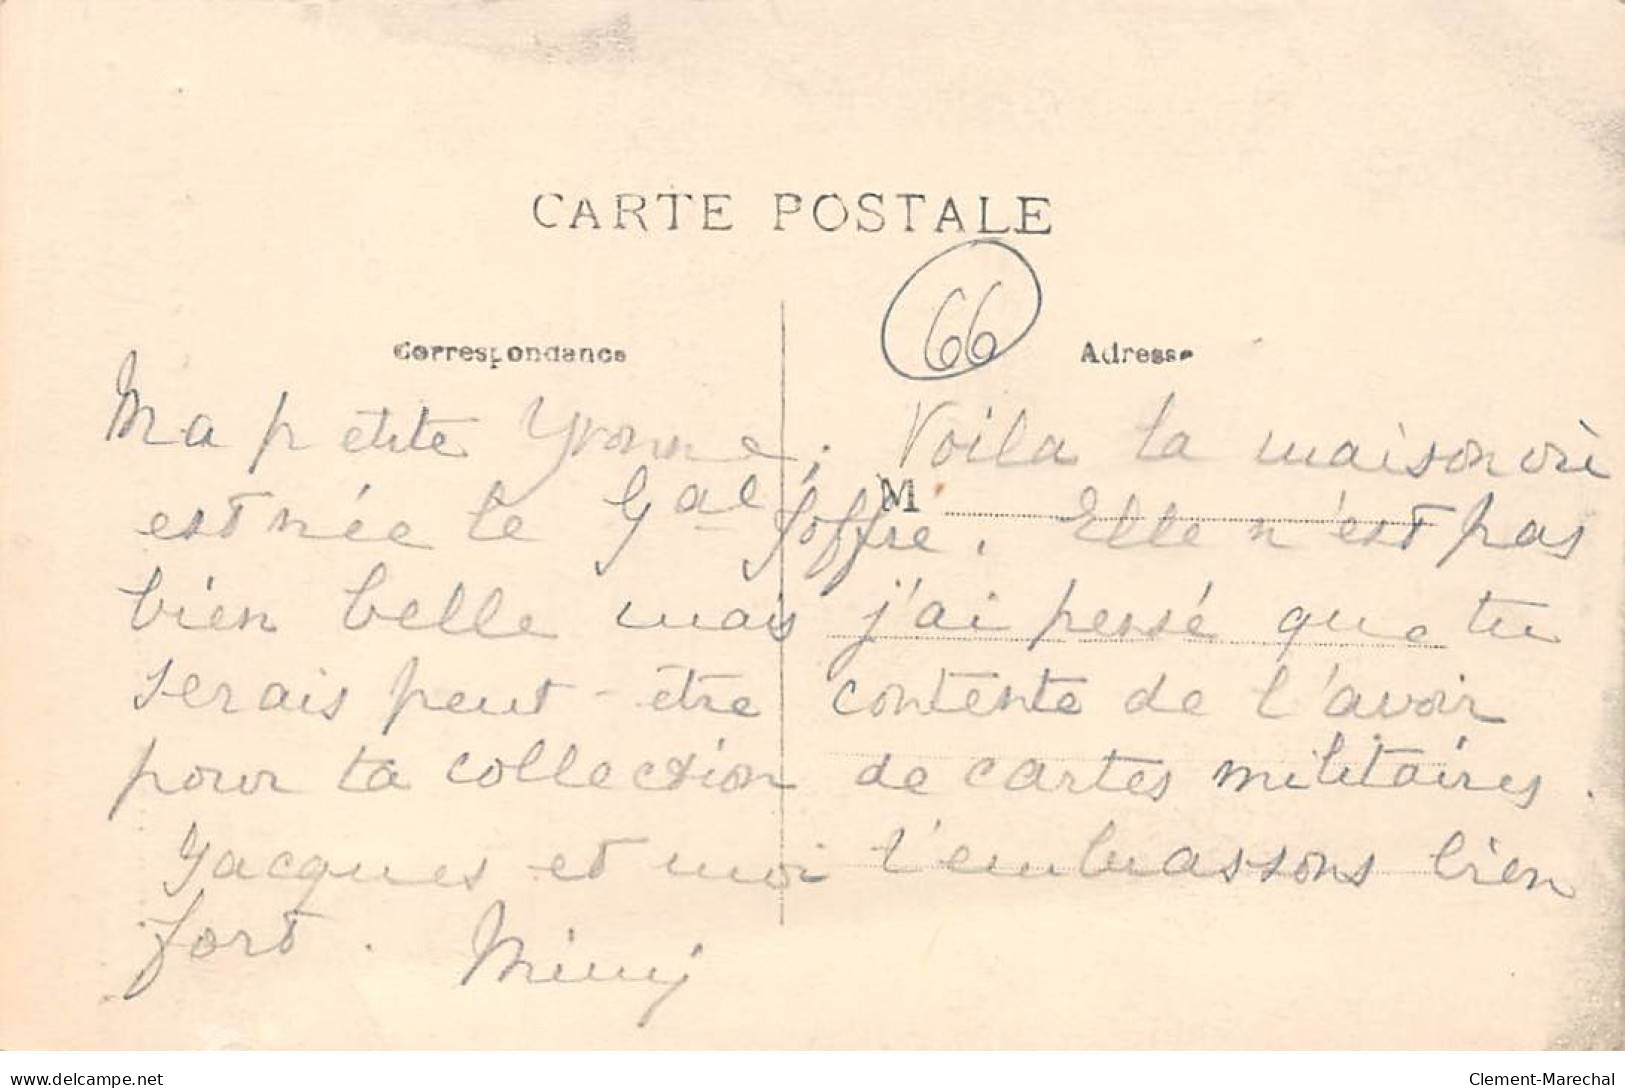 CARTE POSTALE
66
Correspondance
Adresse
Ma petite Yvonne, Voila la maison où
M
est née le Gal Joffre. Elle n'est pas
bien belle mais j'ai pensé que tu
serais peut-être contente de l'avoir
pour ta collection de cartes militaires.
Jacques et moi t'embrassons bien
fort. Mimi
delcampe.net
Clement-Marechal